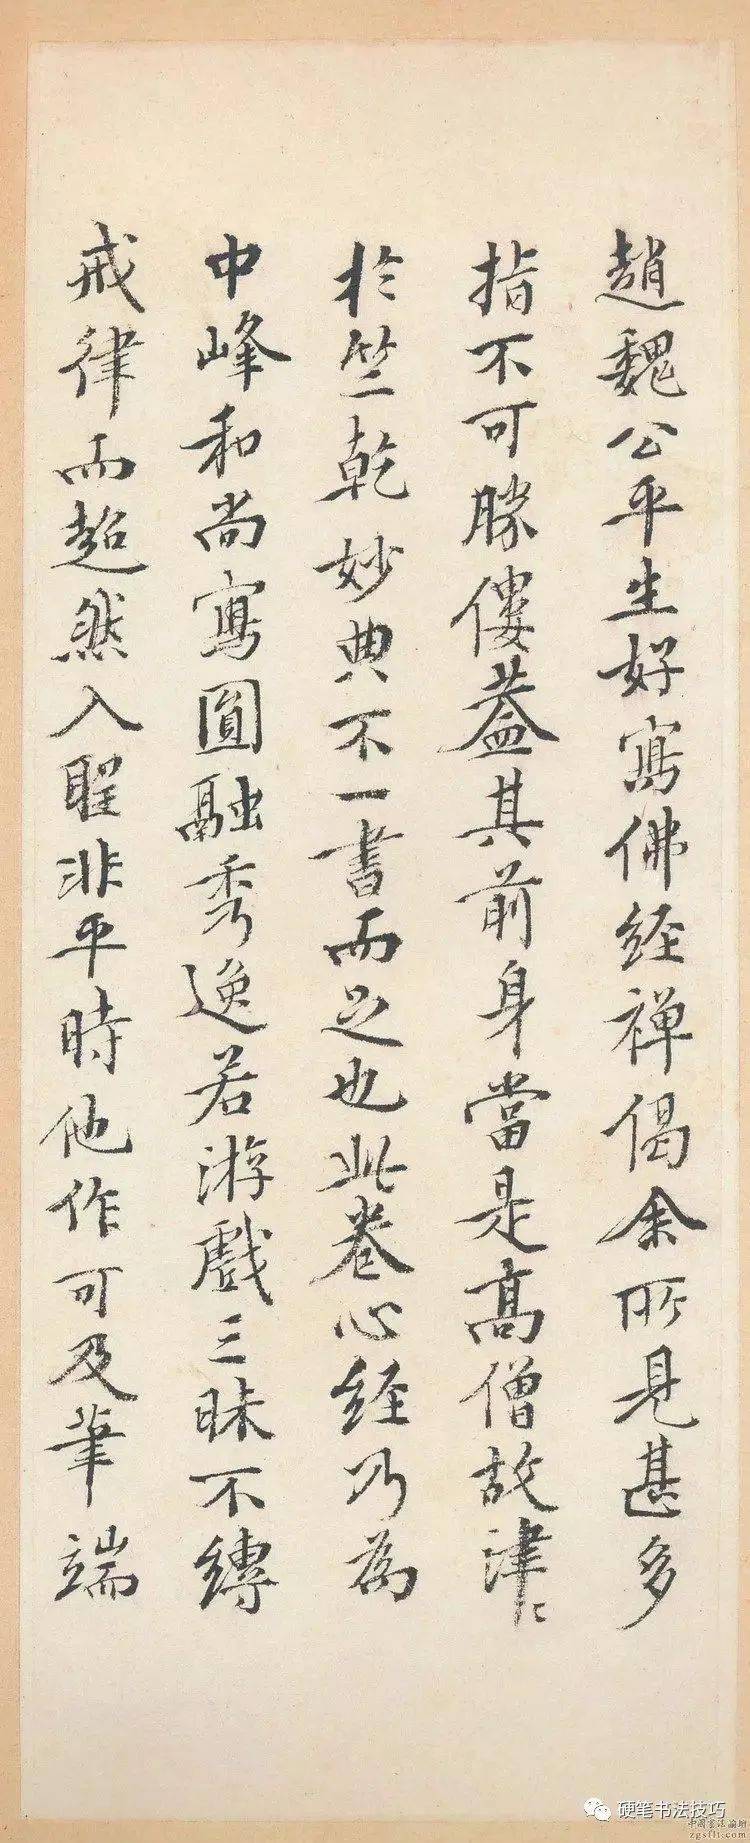 趙魏公平生好寫佛經禅偈余所見甚多
指不可勝僂蓋其前身當是高僧故津〻
於竺乾妙典不一書而足也此卷心經乃為
中峰和尚寫圓融秀逸若游戲三昧不縛
戒律而超然入聖非平時他作可及筆端
硬笔书法技巧
中国书法论坛
zgsflt.com